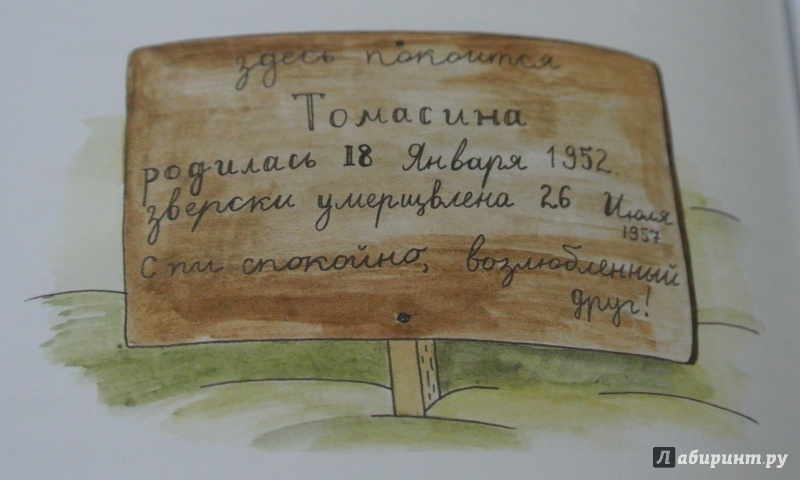 здесь покоится
Томасина
родилась 18 Января 1952.
зверски умерщвлена 26 Июля
1957
Спи спокойно, возлюбленный
друг!
Лабиринт.ру